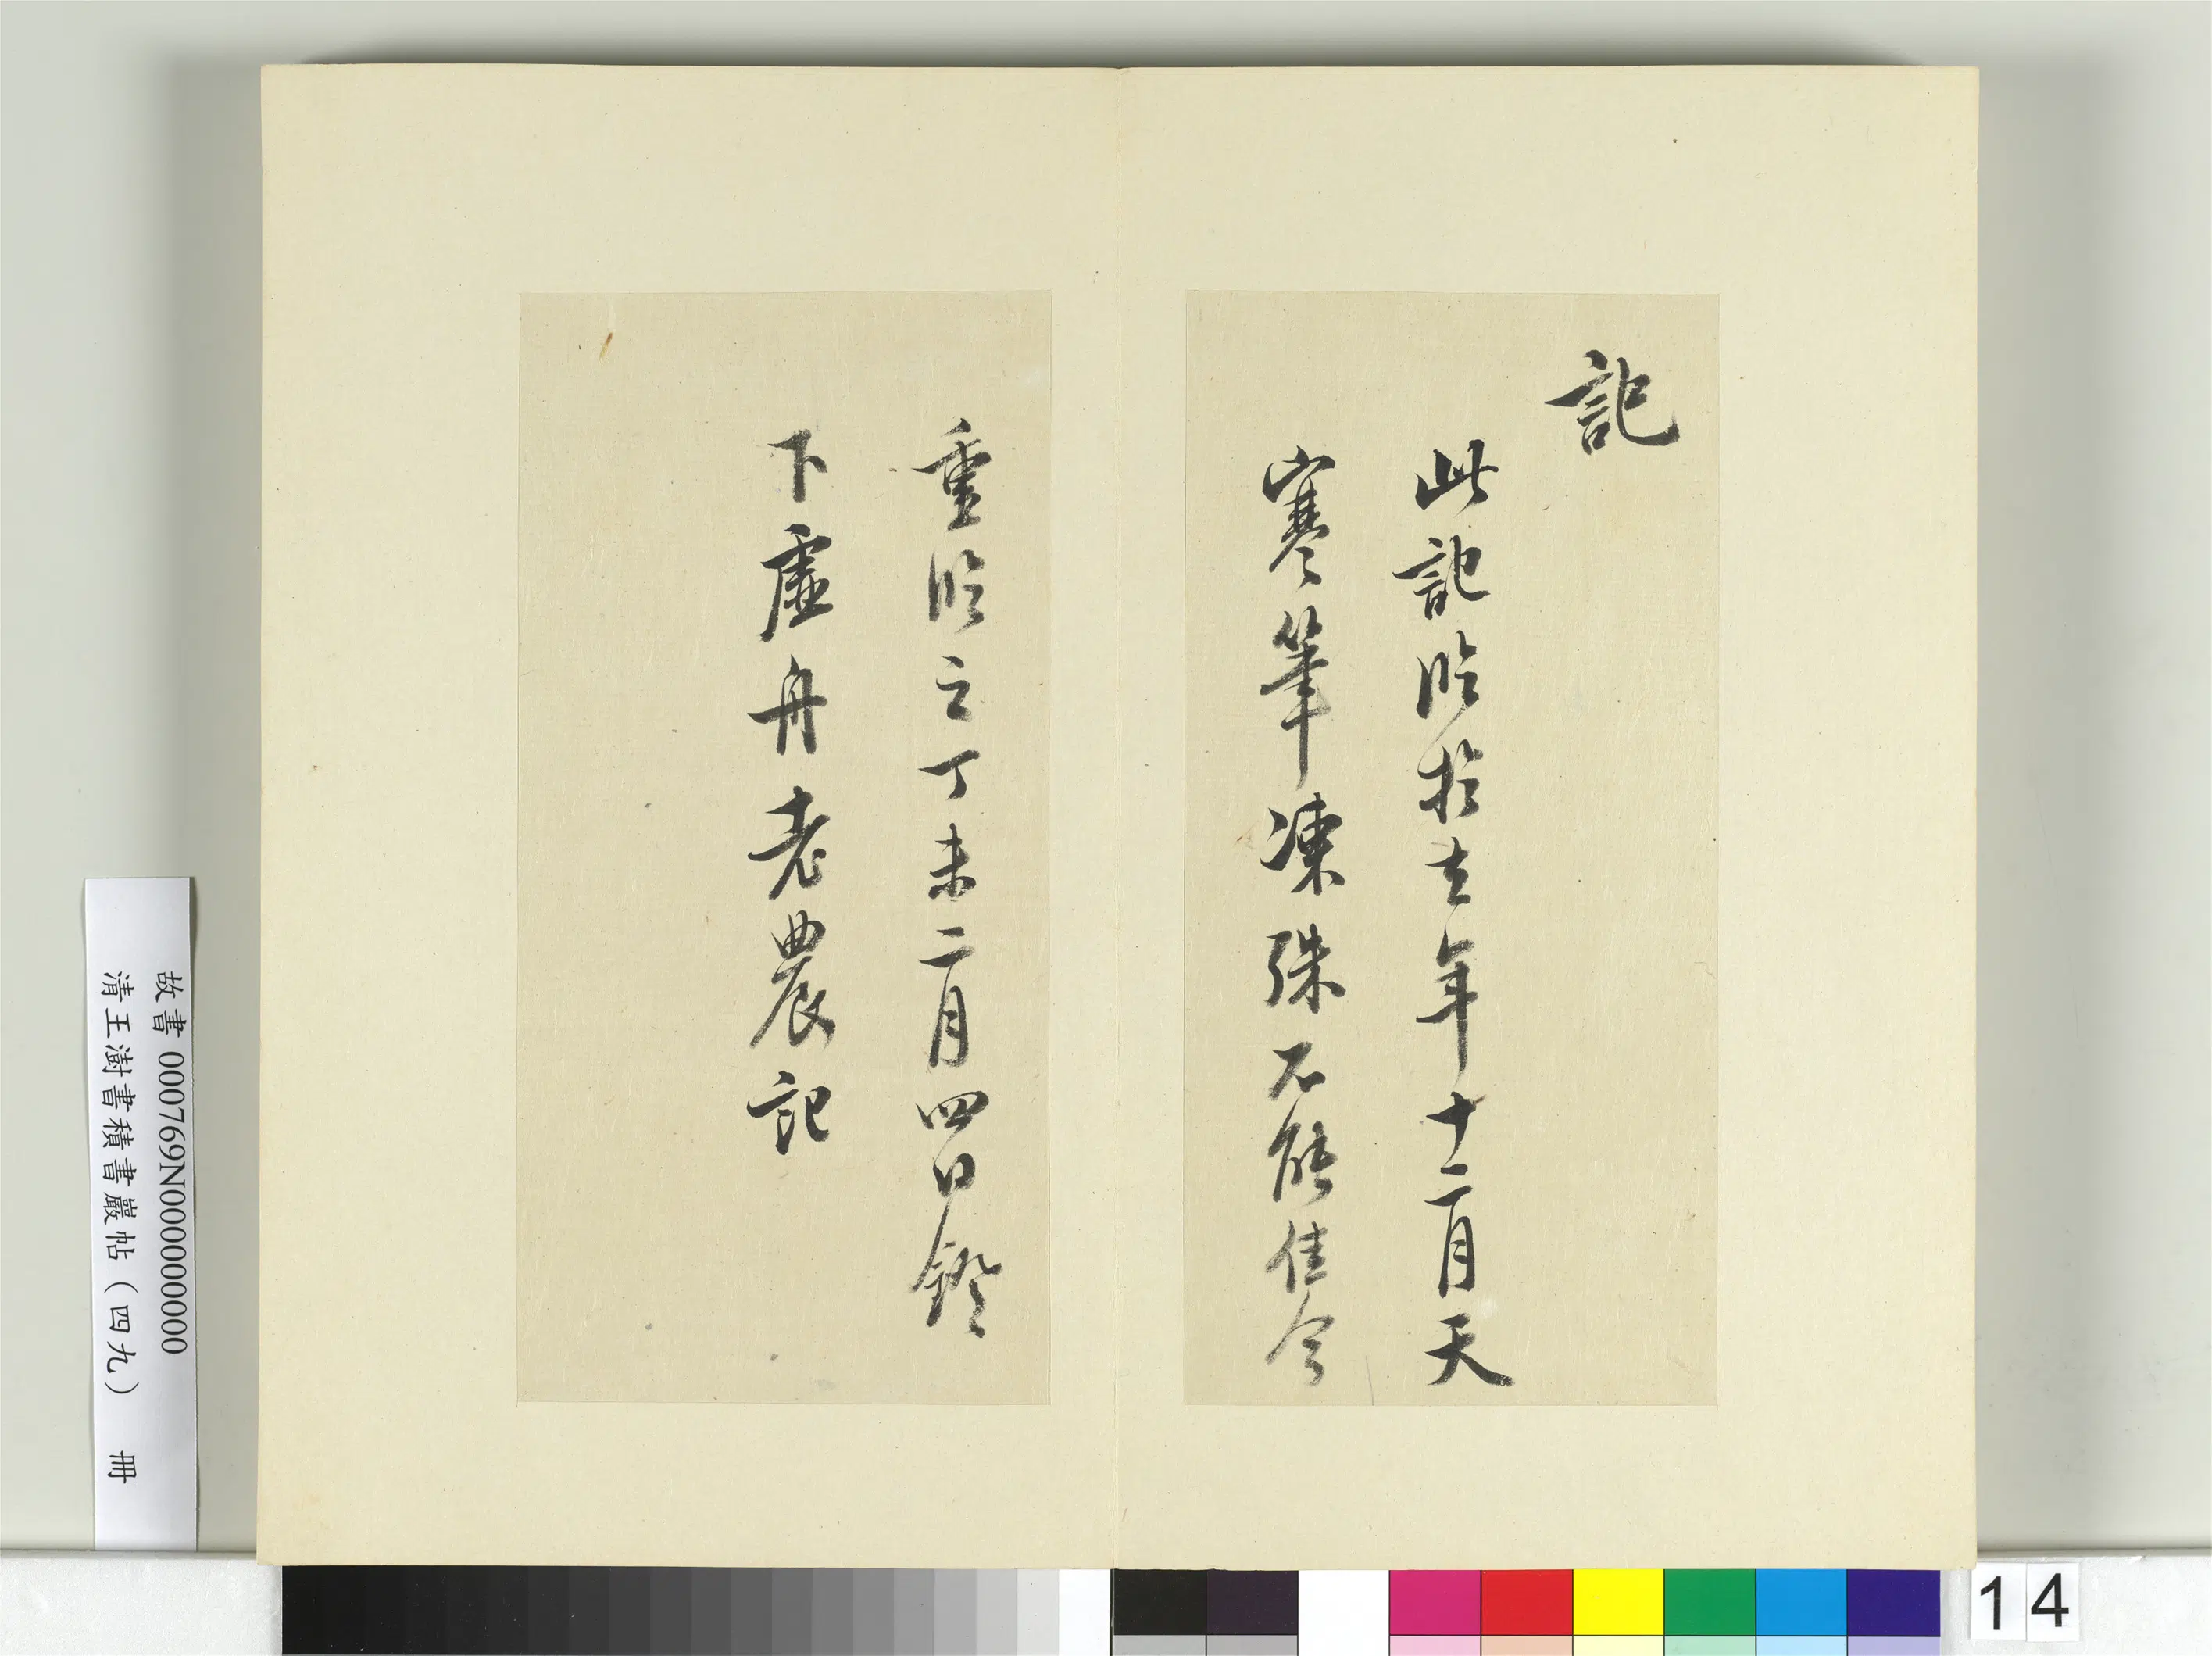 記
此記臨於去年十二月天
寒筆凍殊不能佳今
重臨之丁未二月四日鐙
下虛舟老農記
故書 000769N000000000
清王澍書積書巖帖（四九） 冊
14